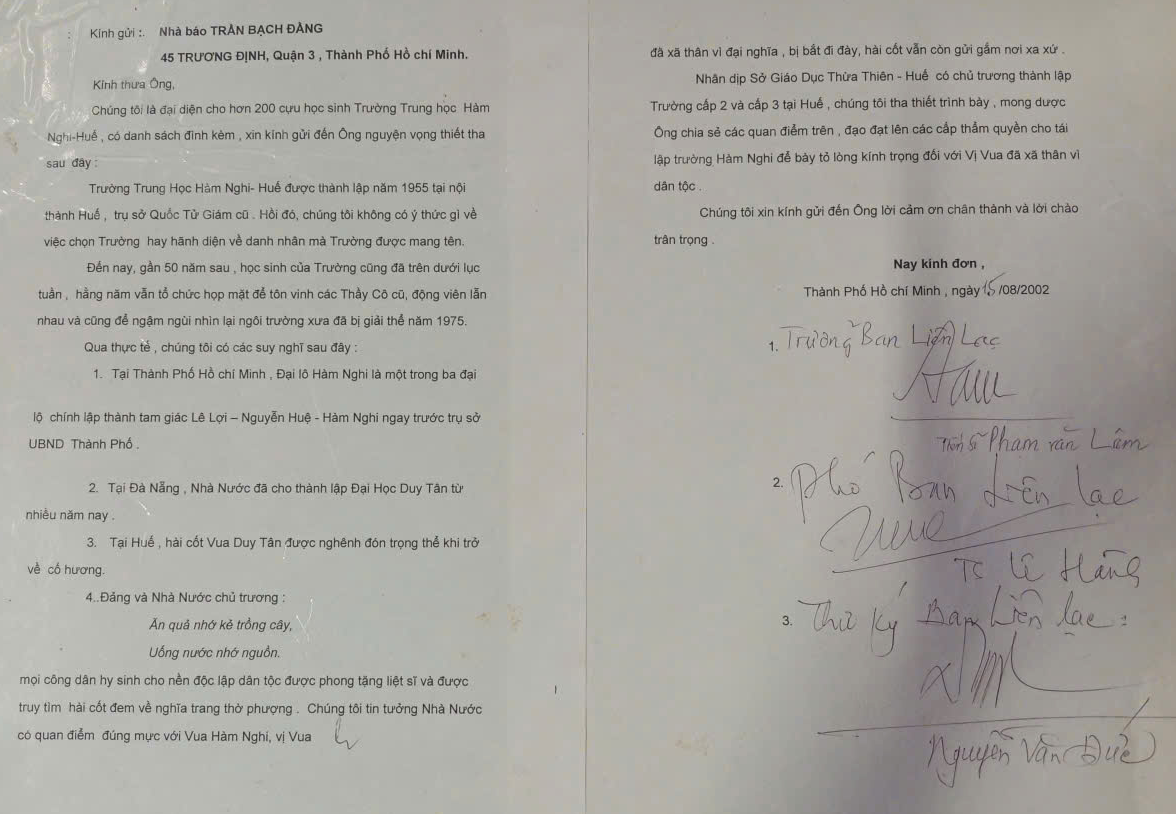 Kính gửi :. Nhà báo TRẦN BẠCH ĐẰNG
45 TRƯƠNG ĐỊNH, Quận 3 , Thành Phố Hồ chí Minh.
Kính thưa Ông,
Chúng tôi là đại diện cho hơn 200 cựu học sinh Trường Trung học Hàm
Nghi-Huế , có danh sách đính kèm , xin kính gửi đến Ông nguyện vọng thiết tha
sau đây :
Trường Trung Học Hàm Nghi- Huế được thành lập năm 1955 tại nội
thành Huế , trụ sở Quốc Tử Giám cũ . Hồi đó, chúng tôi không có ý thức gì về
việc chọn Trường hay hãnh diện về danh nhân mà Trường được mang tên.
Đến nay, gần 50 năm sau , học sinh của Trường cũng đã trên dưới lục
tuần , hằng năm vẫn tổ chức họp mặt để tôn vinh các Thầy Cô cũ, động viên lẫn
nhau và cũng để ngậm ngùi nhìn lại ngôi trường xưa đã bị giải thể năm 1975.
Qua thực tế , chúng tôi có các suy nghĩ sau đây :
1. Tại Thành Phố Hồ chí Minh , Đại lô Hàm Nghi là một trong ba đại
lộ chính lập thành tam giác Lê Lợi – Nguyễn Huệ - Hàm Nghi ngay trước trụ sở
UBND Thành Phố .
2. Tại Đà Nẵng , Nhà Nước đã cho thành lập Đại Học Duy Tân từ
nhiều năm nay .
3. Tại Huế , hài cốt Vua Duy Tân được nghênh đón trọng thể khi trở
về cố hương.
4..Đảng và Nhà Nước chủ trương :
Ăn quả nhớ kẻ trồng cây,
Uống nước nhớ nguồn.
mọi công dân hy sinh cho nền độc lập dân tộc được phong tặng liệt sĩ và được
truy tìm hài cốt đem về nghĩa trang thờ phượng . Chúng tôi tin tưởng Nhà Nước
có quan điểm đúng mực với Vua Hàm Nghi, vị Vua
đã xã thân vì đại nghĩa , bị bắt đi đày, hài cốt vẫn còn gửi gắm nơi xa xứ .
Nhân dịp Sở Giáo Dục Thừa Thiên - Huế có chủ trương thành lập
Trường cấp 2 và cấp 3 tại Huế , chúng tôi tha thiết trình bày , mong dược
Ông chia sẻ các quan điểm trên , đạo đạt lên các cấp thẩm quyền cho tái
lập trường Hàm Nghi để bày tỏ lòng kính trọng đối với Vị Vua đã xã thân vì
dân tộc .
Chúng tôi xin kính gửi đến Ông lời cảm ơn chân thành và lời chào
trân trọng .
Nay kính đơn ,
Thành Phố Hồ chí Minh , ngày 15/08/2002
1. Trưởng Ban Liên Lạc
Phạm văn Lâm
2. Phó Ban Liên lạc
TS Lê Hằng
3. Thư ký Ban Liên lạc :
Nguyễn Văn Đức